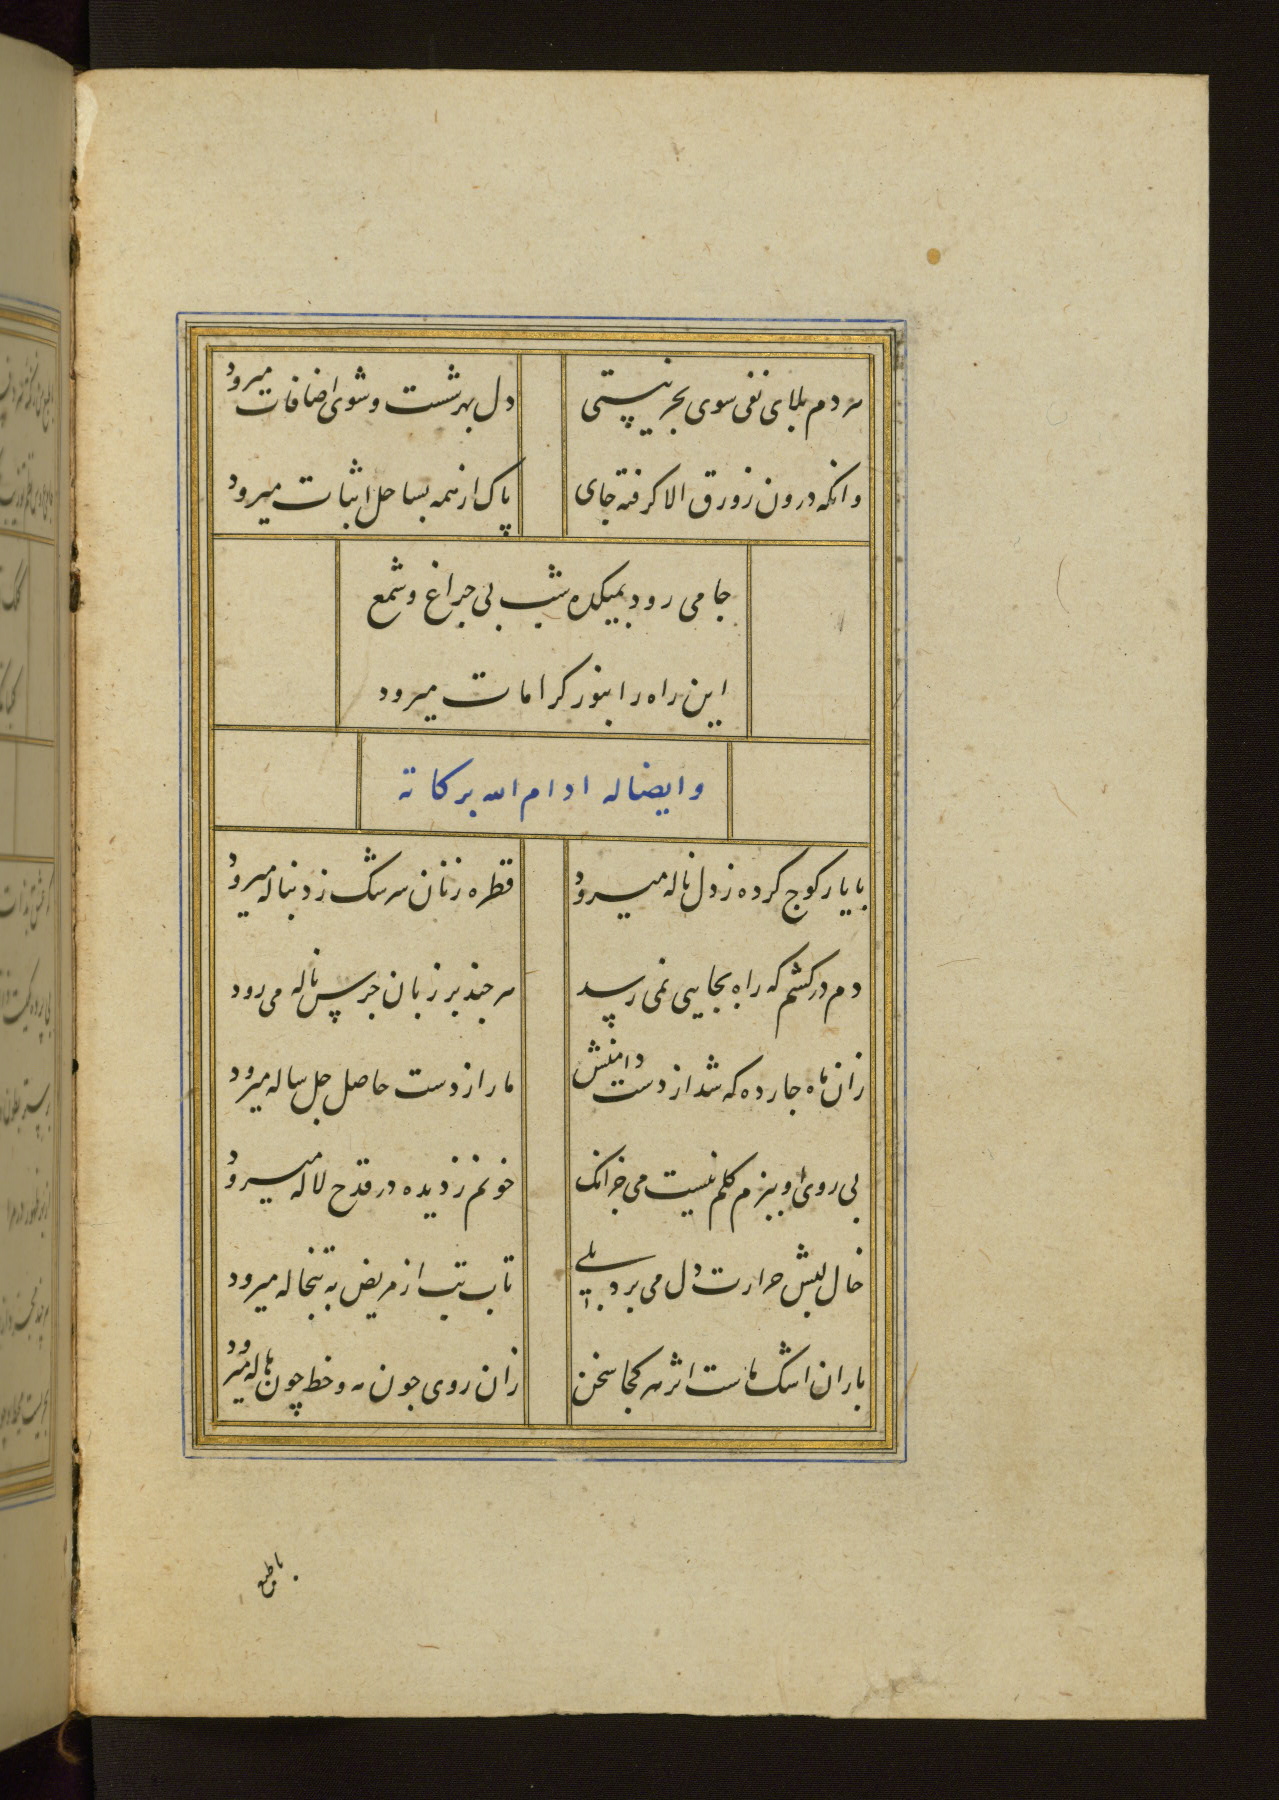 هر دم بلای نفی سوی بحر نیستی
دل بهر شست و شوی اضافات میرود
وانکه درون زورق الا کرفته جای
پاک از همه بساحل اثبات میرود
جامی رود بمیکده شب بی جراغ و شمع
این راه را بنور کرامات میرود
وایضا له ادام الله برکاته
با یار کوج کرده ز دل ناله میرود
قطره زنان سرشک ز دنباله میرود
دم درکشم که راه بجایی نمی رسد
هر جند بر زبان جرس ناله می رود
زان ماه جارده که شد از دست دامنش
ما را ز دست حاصل جل ساله میرود
بی روی او ببزم کلم نیست می جز انک
خونم ز دیده در قدح لاله میرود
خال لبش حرارت دل می برد بلی
تاب تب از مریض به تبخاله میرود
باران اشک ماست اثر هر کجا سخن
زان روی جون مه و خط چون هاله میرود
با طبع